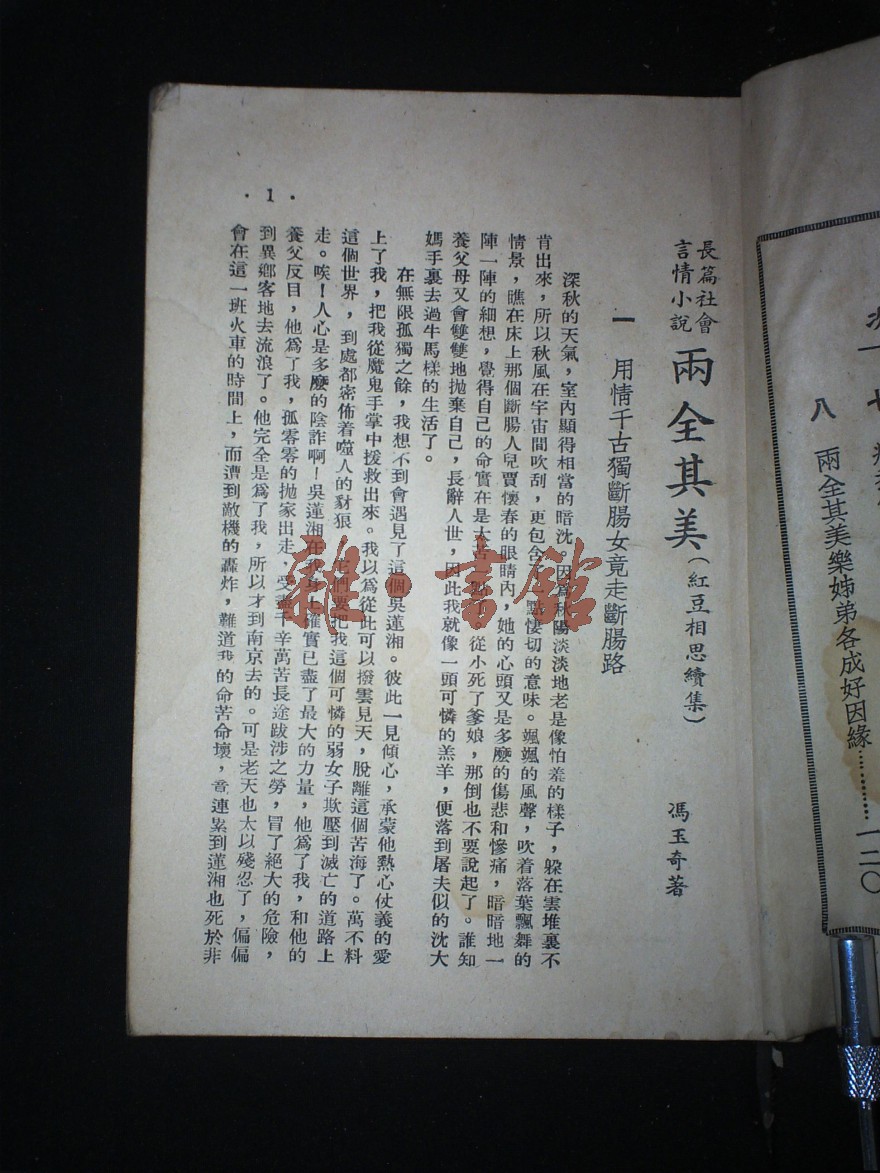 八　兩全其美樂姊弟各成好因緣…………一二〇
長篇社會
言情小說
兩全其美（紅豆相思續集）
馮玉奇著
一　用情千古獨斷腸女竟走斷腸路
深秋的天氣，室內顯得相當的暗沈。因爲秋陽淡淡地老是像怕羞的樣子，躲在雲堆裏不
肯出來，所以秋風在宇宙間吹刮，更包含了一點悽切的意味。颯颯的風聲，吹着落葉飄舞的
情景，瞧在床上那個斷腸人兒賈懷春的眼睛內，她的心頭又是多麼的傷悲和慘痛，暗暗地一
陣一陣的細想，覺得自己的命實在是太苦一點了。從小死了爹娘，那倒也不要說起了。誰知
養父母又會雙雙地拋棄自己，長辭人世，因此我就像一頭可憐的羔羊，便落到屠夫似的沈大
媽手裏去過牛馬樣的生活了。
在無限孤獨之餘，我想不到會遇見了這個吳蓮湘。彼此一見傾心，承蒙他熱心仗義的愛
上了我，把我從魔鬼手掌中援救出來。我以爲從此可以撥雲見天，脫離這個苦海了。萬不料
這個世界，到處都密佈着噬人的豺狼 它們要把我這個可憐的弱女子欺壓到滅亡的道路上
走。唉！人心是多麼的陰詐啊！吳蓮湘在我身上確實已盡了最大的力量，他爲了我，和他的
養父反目，他爲了我，孤零零的拋家出走，受盡千辛萬苦長途跋涉之勞，冒了絕大的危險，
到異鄉客地去流浪了。他完全是爲了我，所以才到南京去的。可是老天也太以殘忍了，偏偏
會在這一班火車的時間上，而遭到敵機的轟炸，難道我的命苦命壞，竟連累到蓮湘也死於非
·1·
雜·書館